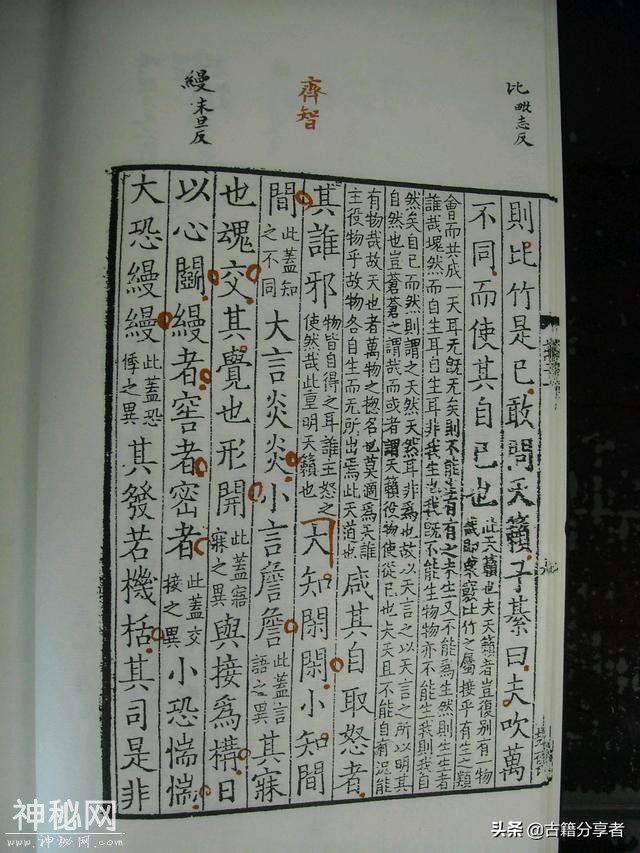 比毗志反
齊智
縵末旦反
則比竹是已敢問天籟子綦曰夫吹萬
不同而使其自已也此天籟也夫天籟者豈復別有一物哉即衆竅比竹之屬接乎有生之類
會而共成一天耳无旣无矣則不能生有有之未生又不能爲生然則生生者
誰哉塊然而自生耳非我生也我旣不能生物物亦不能生我則我自
然矣自已而然則謂之天然天然耳非爲也故以天言之以天言之所以明其
自然也豈蒼蒼之謂哉而或者謂天籟役物使從已也夫天且不能自有況能
有物哉故天也者萬物之揔名也莫適爲天誰主役物乎故物各自生而无所出焉此天道也咸其自取怒者
其誰邪物皆自得之耳誰主怒之使然哉此重明天籟也大知閑閑小知間
間此蓋知之不同大言炎炎小言詹詹此蓋言語之異其寐
也魂交其覺也形開此蓋寤寐之異與接爲構日
以心鬭縵者窖者密者此蓋交接之異小恐惴惴
大恐縵縵此蓋恐悸之異其發若機栝其司是非
神秘网
www.神秘网.com
头条 @古籍分享者